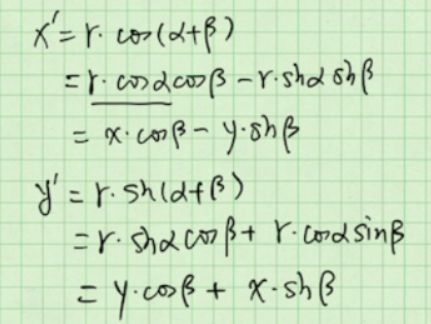 x' = r · cos(α+β)
= r · cosα cosβ - r · sinα sinβ
= x · cosβ - y · sinβ
y' = r · sin(α+β)
= r · sinα cosβ + r · cosα sinβ
= y · cosβ + x · sinβ